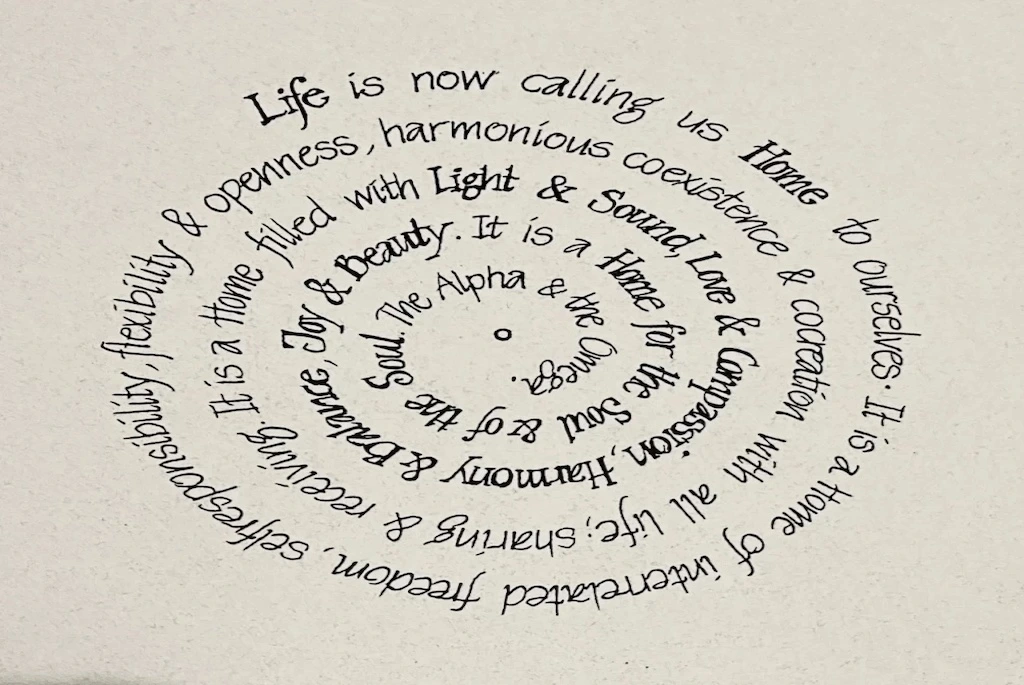 Life is now calling us Home to ourselves. It is a Home of interrelated freedom, selfresponsibility, flexibility & openness, harmonious coexistence & cocreation with all life; sharing & receiving. It is a Home filled with Light & Sound, Love & Compassion, Harmony & Balance, Joy & Beauty. It is a Home for the Soul & of the Soul. The Alpha & the Omega.